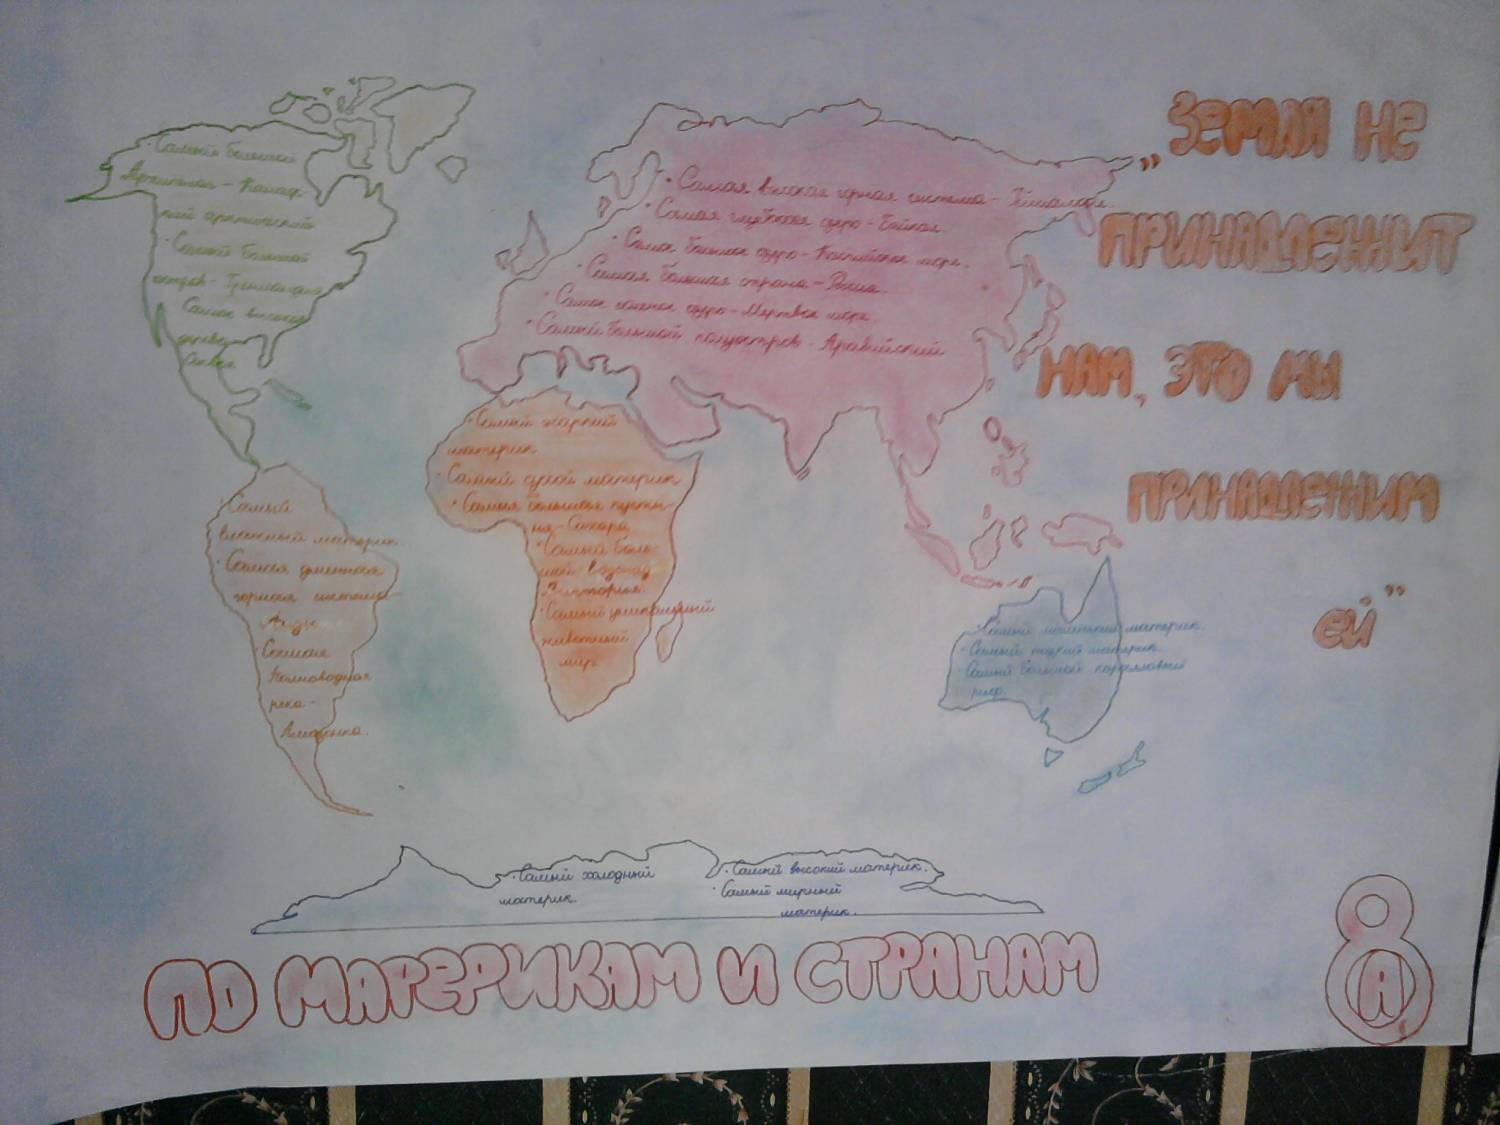 · Самый большой
Архипелаг - Канад-
ский арктический
· Самый большой
остров - Гренландия
Самое высокое
дерево
· Самая высокая горная система - Гималаи.
· Самая глубокая озеро - Байкал.
· Самое большое озеро - Каспийское море.
· Самая большая страна - Россия.
· Самое соленое озеро - Мертвое море.
· Самый большой полуостров - Аравийский
„ЗЕМЛЯ НЕ
ПРИНАДЛЕЖИТ
НАМ, ЭТО МЫ
ПРИНАДЛЕЖИМ
ЕЙ”
· Самый жаркий
материк
· Самый сухой материк
· Самая большая пусты-
ня - Сахара
· Самый боль-
шой водопад
Виктория.
· Самый уникальный
животный
мир
· Самый
влажный материк
· Самая длинная
горная система -
Анды
· Самая
полноводная
река -
Амазонка.
· Самый маленький материк.
· Самый материк.
· Самый большой коралловый
риф.
· Самый холодный
материк.
· Самый высокий материк.
· Самый мирный
материк.
ПО МАТЕРИКАМ И СТРАНАМ
8
А